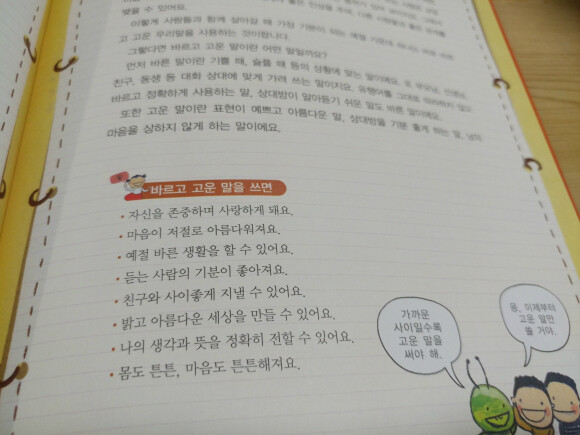 맺을 수 있어요.
이렇게 사람들과 함께 살아갈 때 가장 기본이 되는 예절
고 고운 우리말을 사용하는 것이랍니다.
그렇다면 바르고 고운 말이란 어떤 말일까요?
먼저 바른 말이란 기쁠 때, 슬플 때 등의 상황에 맞는 말이에요. 또 부모님, 선생님,
친구, 동생 등 대화 상대에 맞게 가려 쓰는 말이지요. 유행어를 그대로 따라하지 않고
바르고 정확하게 사용하는 말, 상대방이 알아듣기 쉬운 말도 바른 말이에요.
또한 고운 말이란 표현이 예쁘고 아름다운 말, 상대방을 기분 좋게 하는 말, 남의
마음을 상하지 않게 하는 말이에요.
바르고 고운 말을 쓰면
• 자신을 존중하며 사랑하게 돼요.
• 마음이 저절로 아름다워져요.
• 예절 바른 생활을 할 수 있어요.
• 듣는 사람의 기분이 좋아져요.
• 친구와 사이좋게 지낼 수 있어요.
• 밝고 아름다운 세상을 만들 수 있어요.
• 나의 생각과 뜻을 정확히 전할 수 있어요.
• 몸도 튼튼, 마음도 튼튼해져요.
가까운
사이일수록
고운 말을
써야 해.
응, 이제부터
고운 말만
쓸 거야.